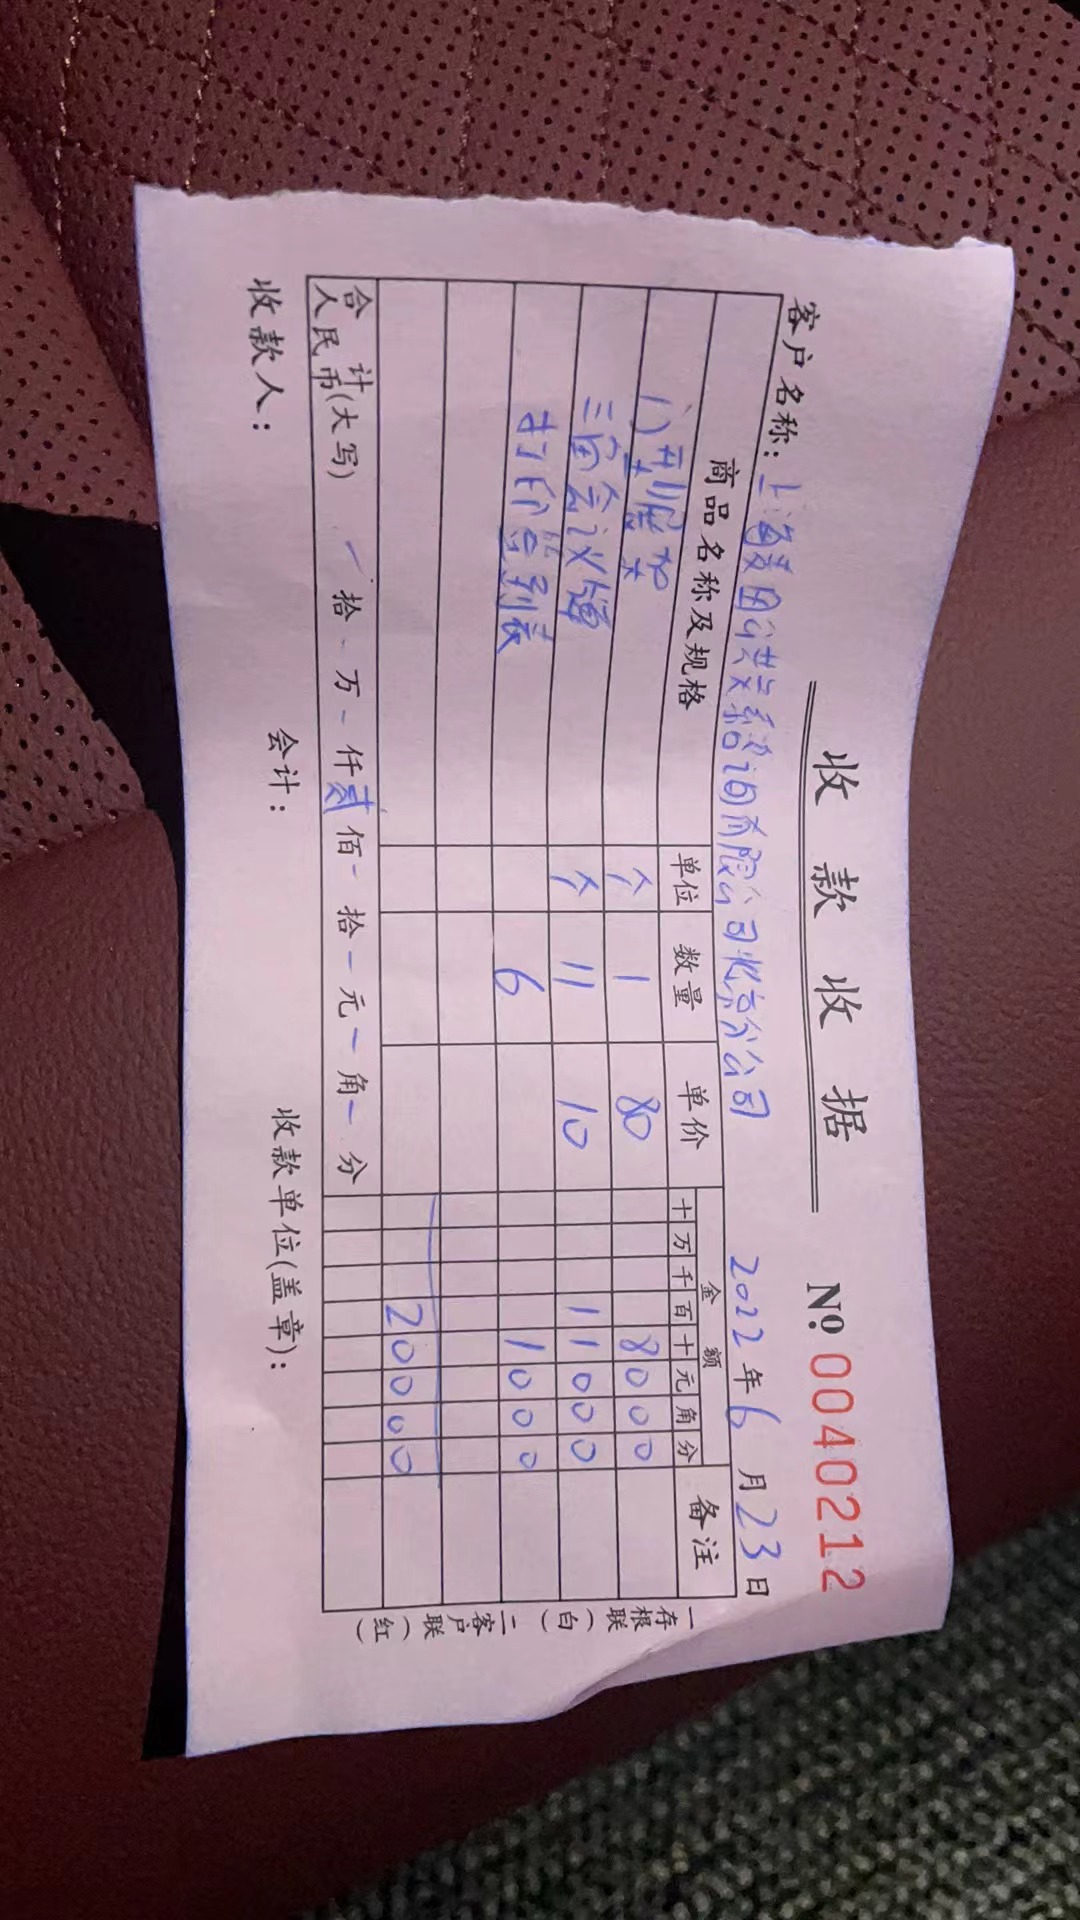 收款收据
№ 0040212
客户名称：上海美团公共关系咨询有限公司北京分公司 2022年6月23日
商品名称及规格 单位 数量 单价 金额 备注
十 万 千 百 十 元 角 分
门型展架 个 1 80 8 0 0 0
三角会议牌 个 11 10 1 1 0 0 0
打印签到表 6 1 0 0 0
2 0 0 0 0
合计
人民币(大写) 拾 万 仟 贰 佰 拾 元 角 分
收款人： 会计： 收款单位(盖章)：
一存根联(白) 二客户联(红)